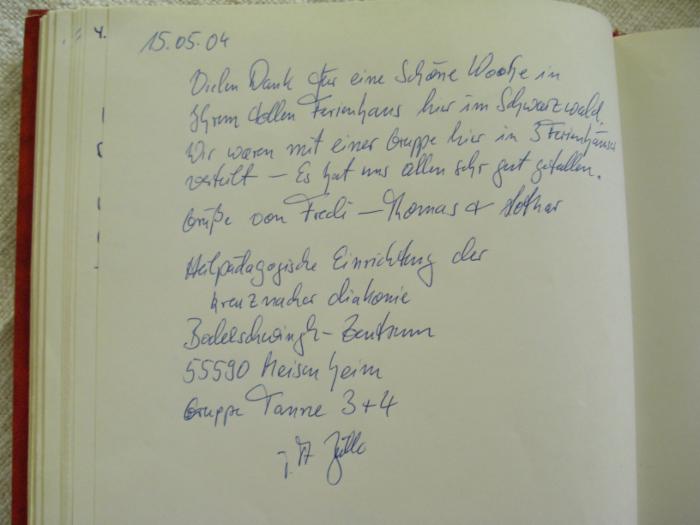 15.05.04
Vielen Dank für eine Schöne Woche in
Ihrem tollen Ferienhaus hier im Schwarzwald.
Wir waren mit einer Gruppe hier in 3 Ferienhäuser
verteilt – Es hat uns allen sehr gut gefallen.
Grüße von Fredi – Thomas + Lothar
Heilpädagogische Einrichtung der
kreuznacher diakonie
Bodelschwingh-Zentrum
55590 Meisenheim
Gruppe Tanne 3+4
i.A.